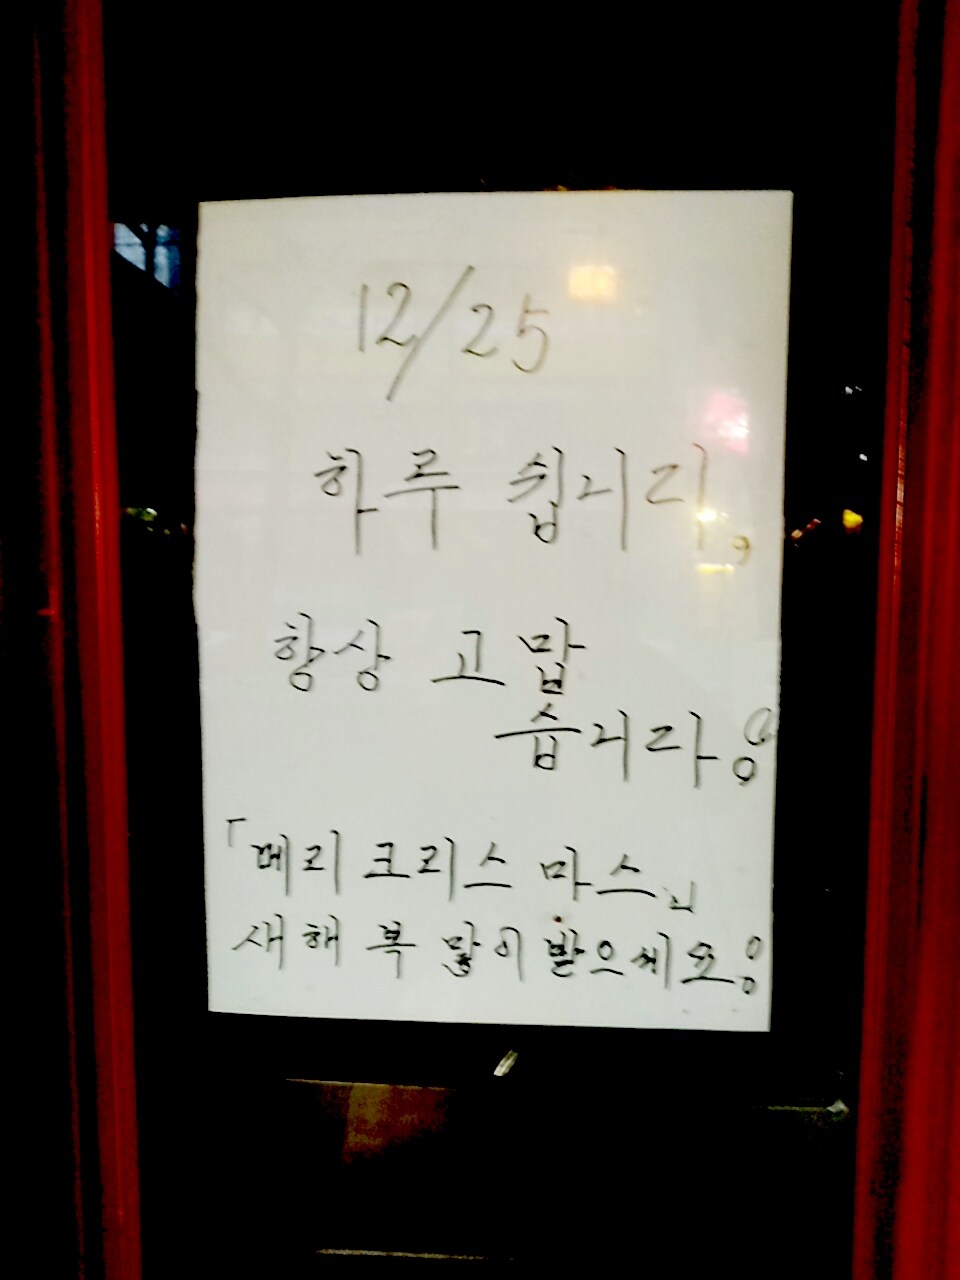 12/25
하루 쉽니다,
항상 고맙
습니다.
「메리크리스마스」
새해 복 많이 받으세요